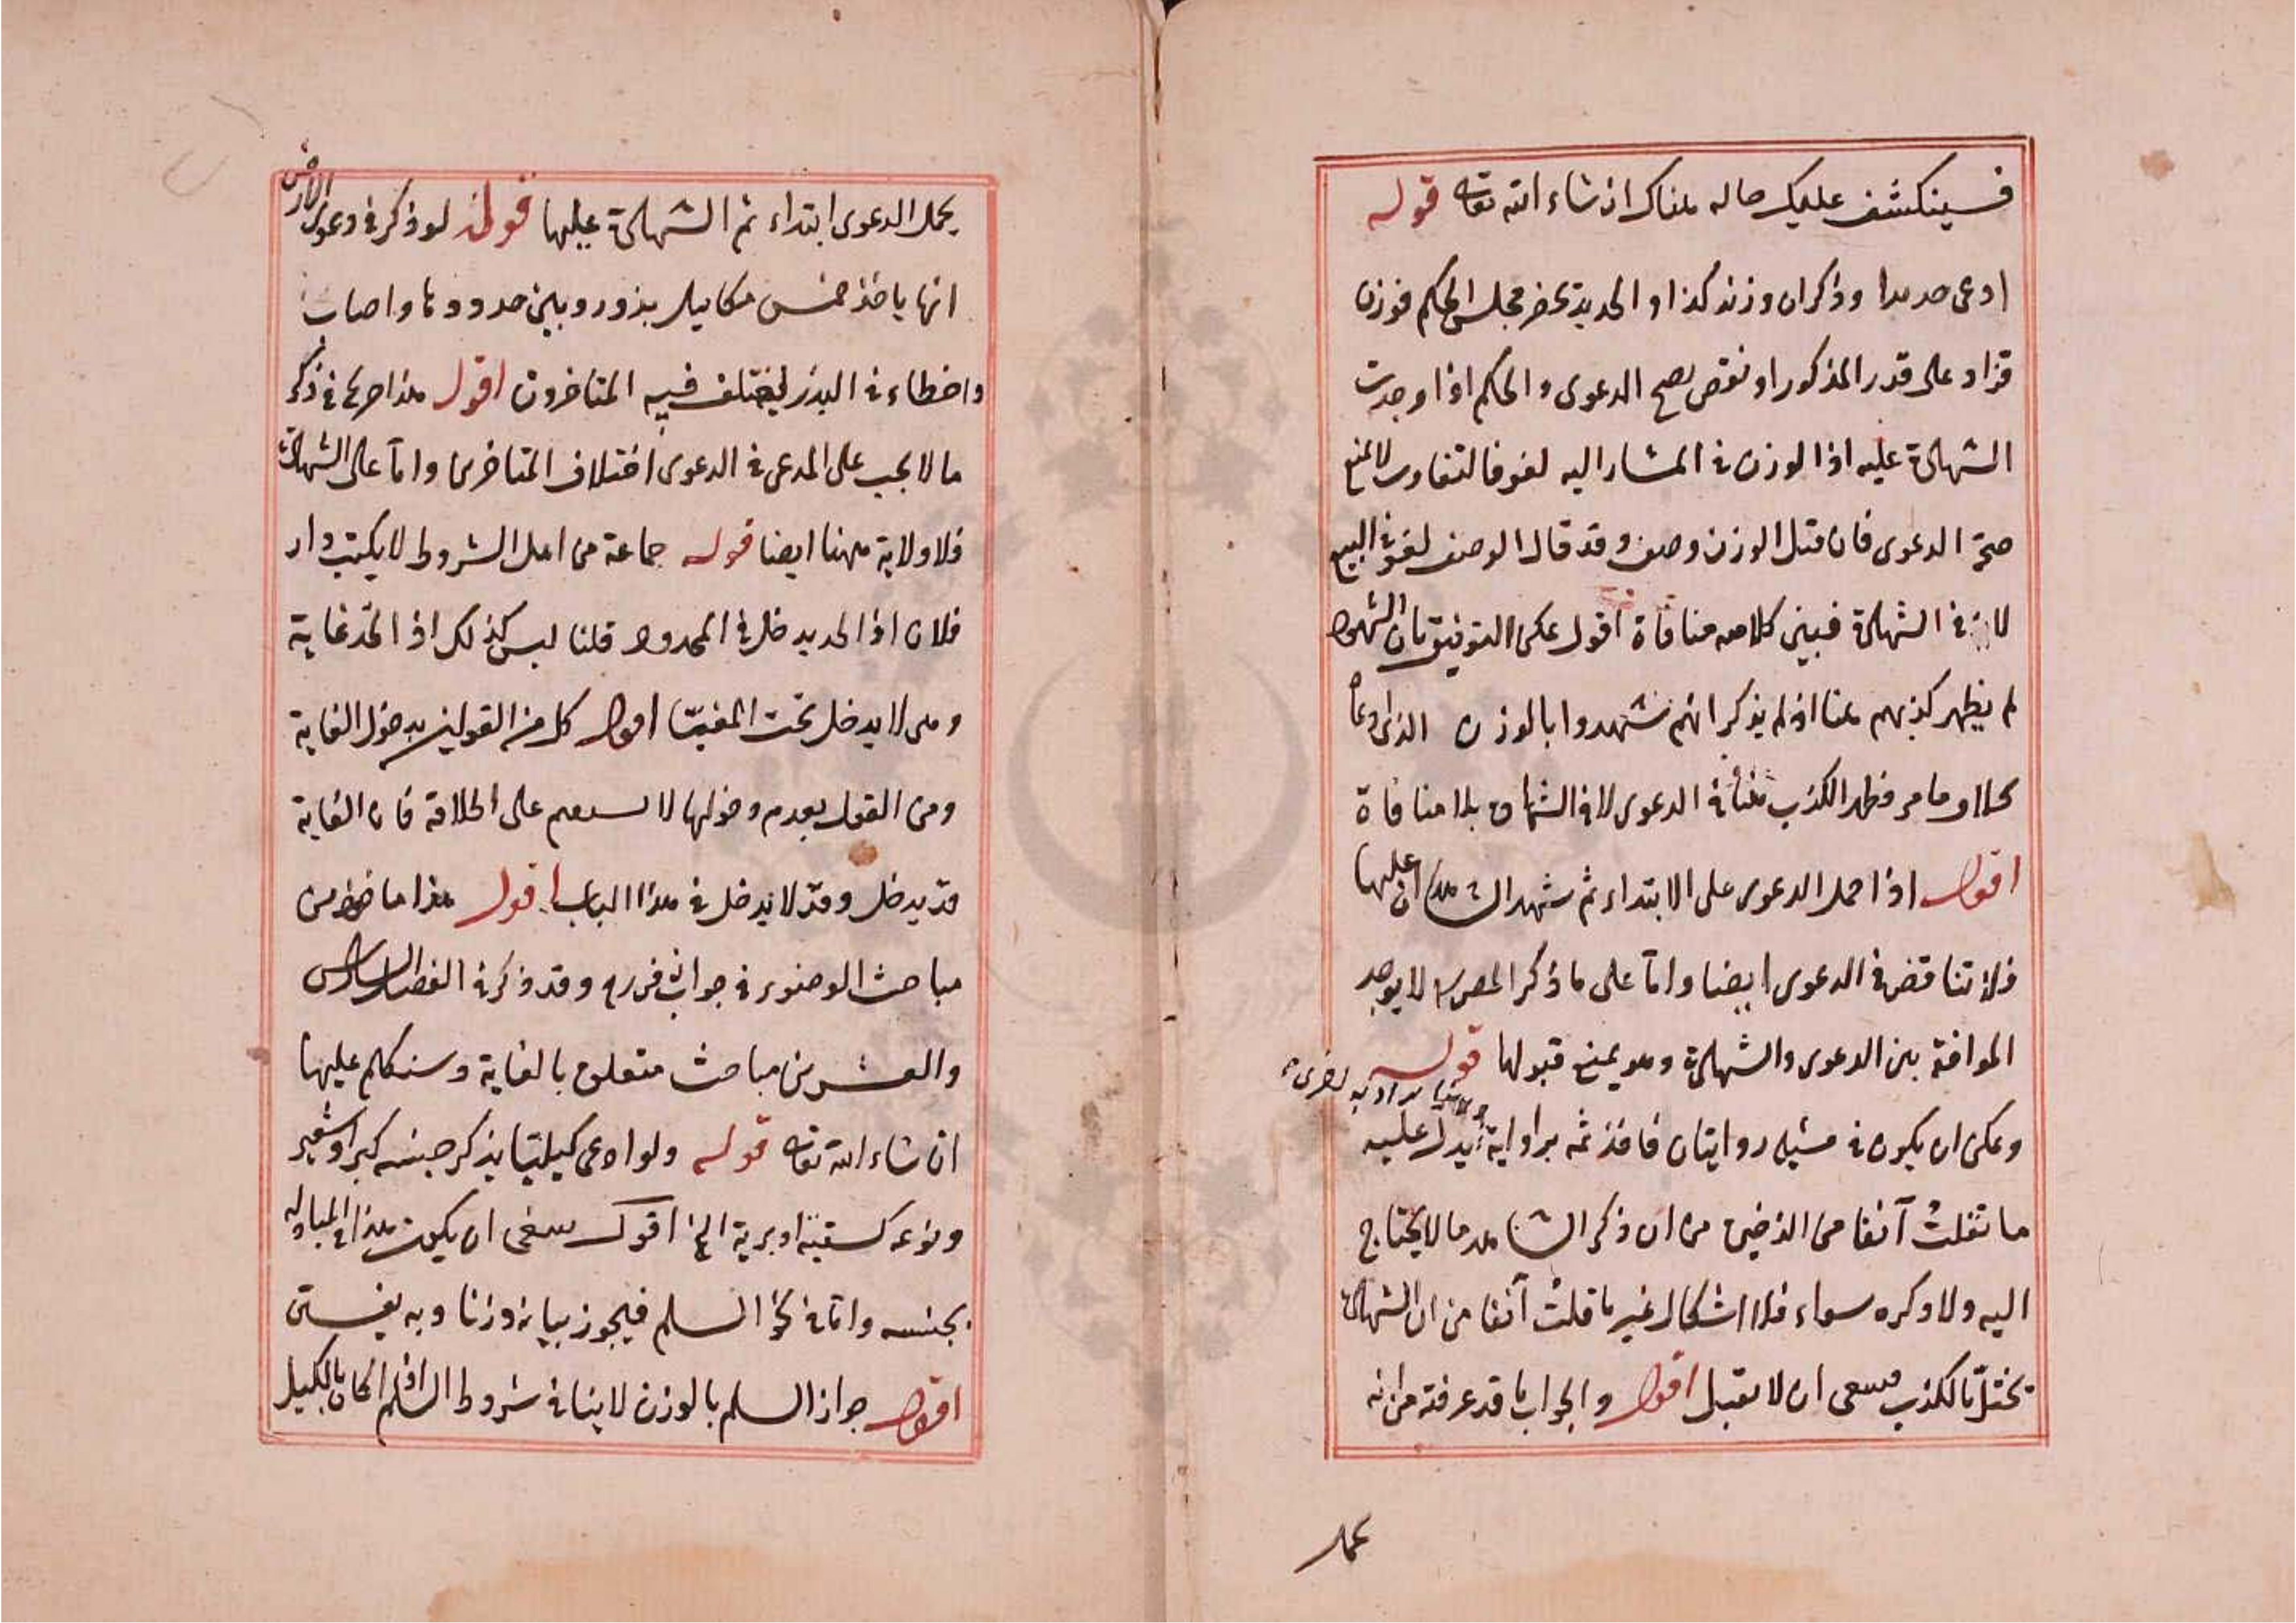 فسينكشف عليك حاله هناك ان شاء الله تعالى قوله
ادعى حديدا وذكر ان وزنه كذا والحديد بحضر مجلس الحكم فوزن
فزاد على قدر المذكور او نقص يصح الدعوى والحكم اذا وجدت
الشهادة عليه اذ الوزن في المشار اليه لغو فالتفاوت لا يمنع
صحة الدعوى فان قيل الوزن وصف وقد قال الوصف لغو في البيع
لا في الشهادة فبين كلامه منافاة اقول يمكن التوفيق بان الشهود
لم يظهر كذبهم هنا اذ لم يذكر انهم شهدوا بالوزن الذي ادعاه
بخلاف ما مر فظهر الكذب هنا في الدعوى لا في الشهادة بلا منافاة
اقول اذا حمل الدعوى على الابتداء ثم شهد الشاهدان عليها
فلا تناقض في الدعوى ايضا واما على ما ذكر المصر لا يوجد
الموافقة بين الدعوى والشهادة وهو يمنع قبولها قوله
ويمكن ان يكون في مثله روايتان فاخذ ثمه برواية يدل عليه
وهنا برواية اخرى
ما نقلت آنفا من الذخيرة من ان ذكر الشاهد ما لا يحتاج
اليه ولا ذكره سواء فلا اشكال غير ما قلت آنفا من ان الشهادة
تختل بالكذب فينبغي ان لا تقبل اقول والجواب ما قد عرفته من انه
يحمل
يحمل الدعوى ابتداء ثم الشهادة عليها قوله لو ذكر في دعوى الارض
انها ياخذ خمس مكاييل بذور وبين حدودها واصاب
واخطاء في البذر يختلف فيه المتاخرون اقول هذا صريح في ذكر
ما لا يجب على المدعى في الدعوى اختلاف المتاخرين واما على الشهادة
فلا ولاية ههنا ايضا قوله جماعة من اهل الشروط لا يكتب دار
فلان اذ الحد يدخل في المحدود قلنا ليس كذلك اذ الحد غاية
وهي لا يدخل تحت المغيا اقول كل من القولين بدخول الغاية
ومن القول بعدم دخولها لا يستقيم على اطلاقه فان الغاية
قد يدخل وقد لا يدخل في هذا الباب اقول هذا ماخوذ من
مباحث الوضوء في جواب زفر ره وقد ذكر في الفصل السادس
والعشرين مباحث متعلق بالغاية وسنكلم عليها
ان شاء الله تعالى قوله ولو ادعى كيليا يذكر جنسه كبر او شعير
ونوعه كسقية او برية الخ اقول ينبغي ان يكون هذا في المبادلة
بجنسه واما في نحو السلم فيجوز بيانه وزنا وبه يفتى
اقول جواز السلم بالوزن لا ينافي شروط السلم اذا كان بالكيل